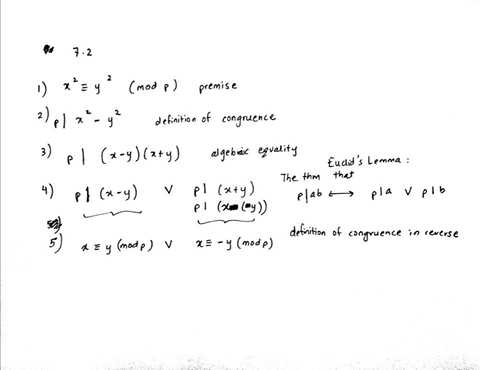 7.2
1) x² ≡ y² (mod p) premise
2) p | x² - y² definition of congruence
3) p | (x-y)(x+y) algebraic equality
Euclid's Lemma:
4) p | (x-y) ∨ p | (x+y) The thm that p|ab ⟷ p|a ∨ p|b
p | (x-(-y))
5) x ≡ y (mod p) ∨ x ≡ -y (mod p) definition of congruence in reverse